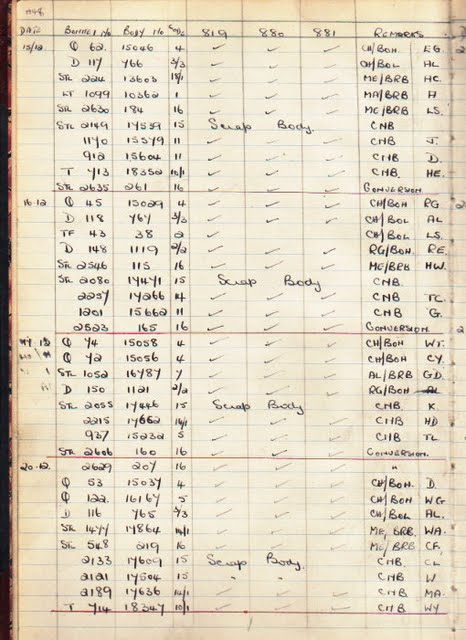 1948
DATE BONNET No BODY No CODE 819 880 881 REMARKS
15/12 Q 62 15046 4 ✓ ✓ ✓ CH/BOH EG.
D 117 766 3/3 ✓ ✓ ✓ CH/BOL AL
STL 224 13603 18/1 ✓ ✓ ✓ ME/BRB HC.
LT 1099 10362 1 ✓ ✓ ✓ MA/BRB H
STL 2630 184 16 ✓ ✓ ✓ ME/BRB LS.
STL 2149 17539 15 Scrap Body. CNB
1170 15579 11 ✓ ✓ ✓ CNB J.
912 15604 11 ✓ ✓ ✓ CNB D.
T 713 18352 10/1 ✓ ✓ ✓ CNB HE.
STL 2635 261 16 ✓ ✓ ✓ CONVERSION
16.12 Q 45 15029 4 ✓ ✓ ✓ CH/BOH RG
D 118 767 3/3 ✓ ✓ ✓ CH/BOL AL
TF 43 38 2 ✓ ✓ ✓ CH/BOL LS.
D 148 1119 2/2 ✓ ✓ ✓ RG/BOH. RE.
STL 2546 115 16 ✓ ✓ ✓ ME/BRB HW.
STL 2080 17471 15 Scrap Body CNB.
2257 17266 14 ✓ ✓ ✓ CNB TC.
1201 15662 11 ✓ ✓ ✓ CNB G.
2523 165 16 ✓ ✓ ✓ CONVERSION.
Q 74 15058 4 ✓ ✓ ✓ CH/BOH WT.
Q 72 15056 4 ✓ ✓ ✓ CH/BOH CY.
STL 1052 16787 7 ✓ ✓ ✓ AL/BRB GD.
D 150 1121 2/2 ✓ ✓ ✓ RG/BOH
STL 2055 17446 15 Scrap Body CNB. K.
2215 17662 14/1 ✓ ✓ ✓ CNB HD
937 15232 5 ✓ ✓ ✓ CNB TL
STL 2606 160 16 ✓ ✓ ✓ CONVERSION.
20.12. 2629 207 16 ✓ ✓ ✓ "
Q 53 15037 4 ✓ ✓ ✓ CH/BOH. D.
Q 122 16167 5 ✓ ✓ ✓ CH/BOH WG
D 116 765 3/3 ✓ ✓ ✓ CH/BOL AL.
STL 1477 17864 14/1 ✓ ✓ ✓ ME, BRB. WA.
STL 548 219 16 ✓ ✓ ✓ ME/BRB CF.
2133 17609 15 Scrap Body. CNB. CL
2121 17504 15 " " CNB W
2189 17636 14/1 ✓ ✓ ✓ CNB MA.
T 714 18347 10/1 ✓ ✓ ✓ CNB WY